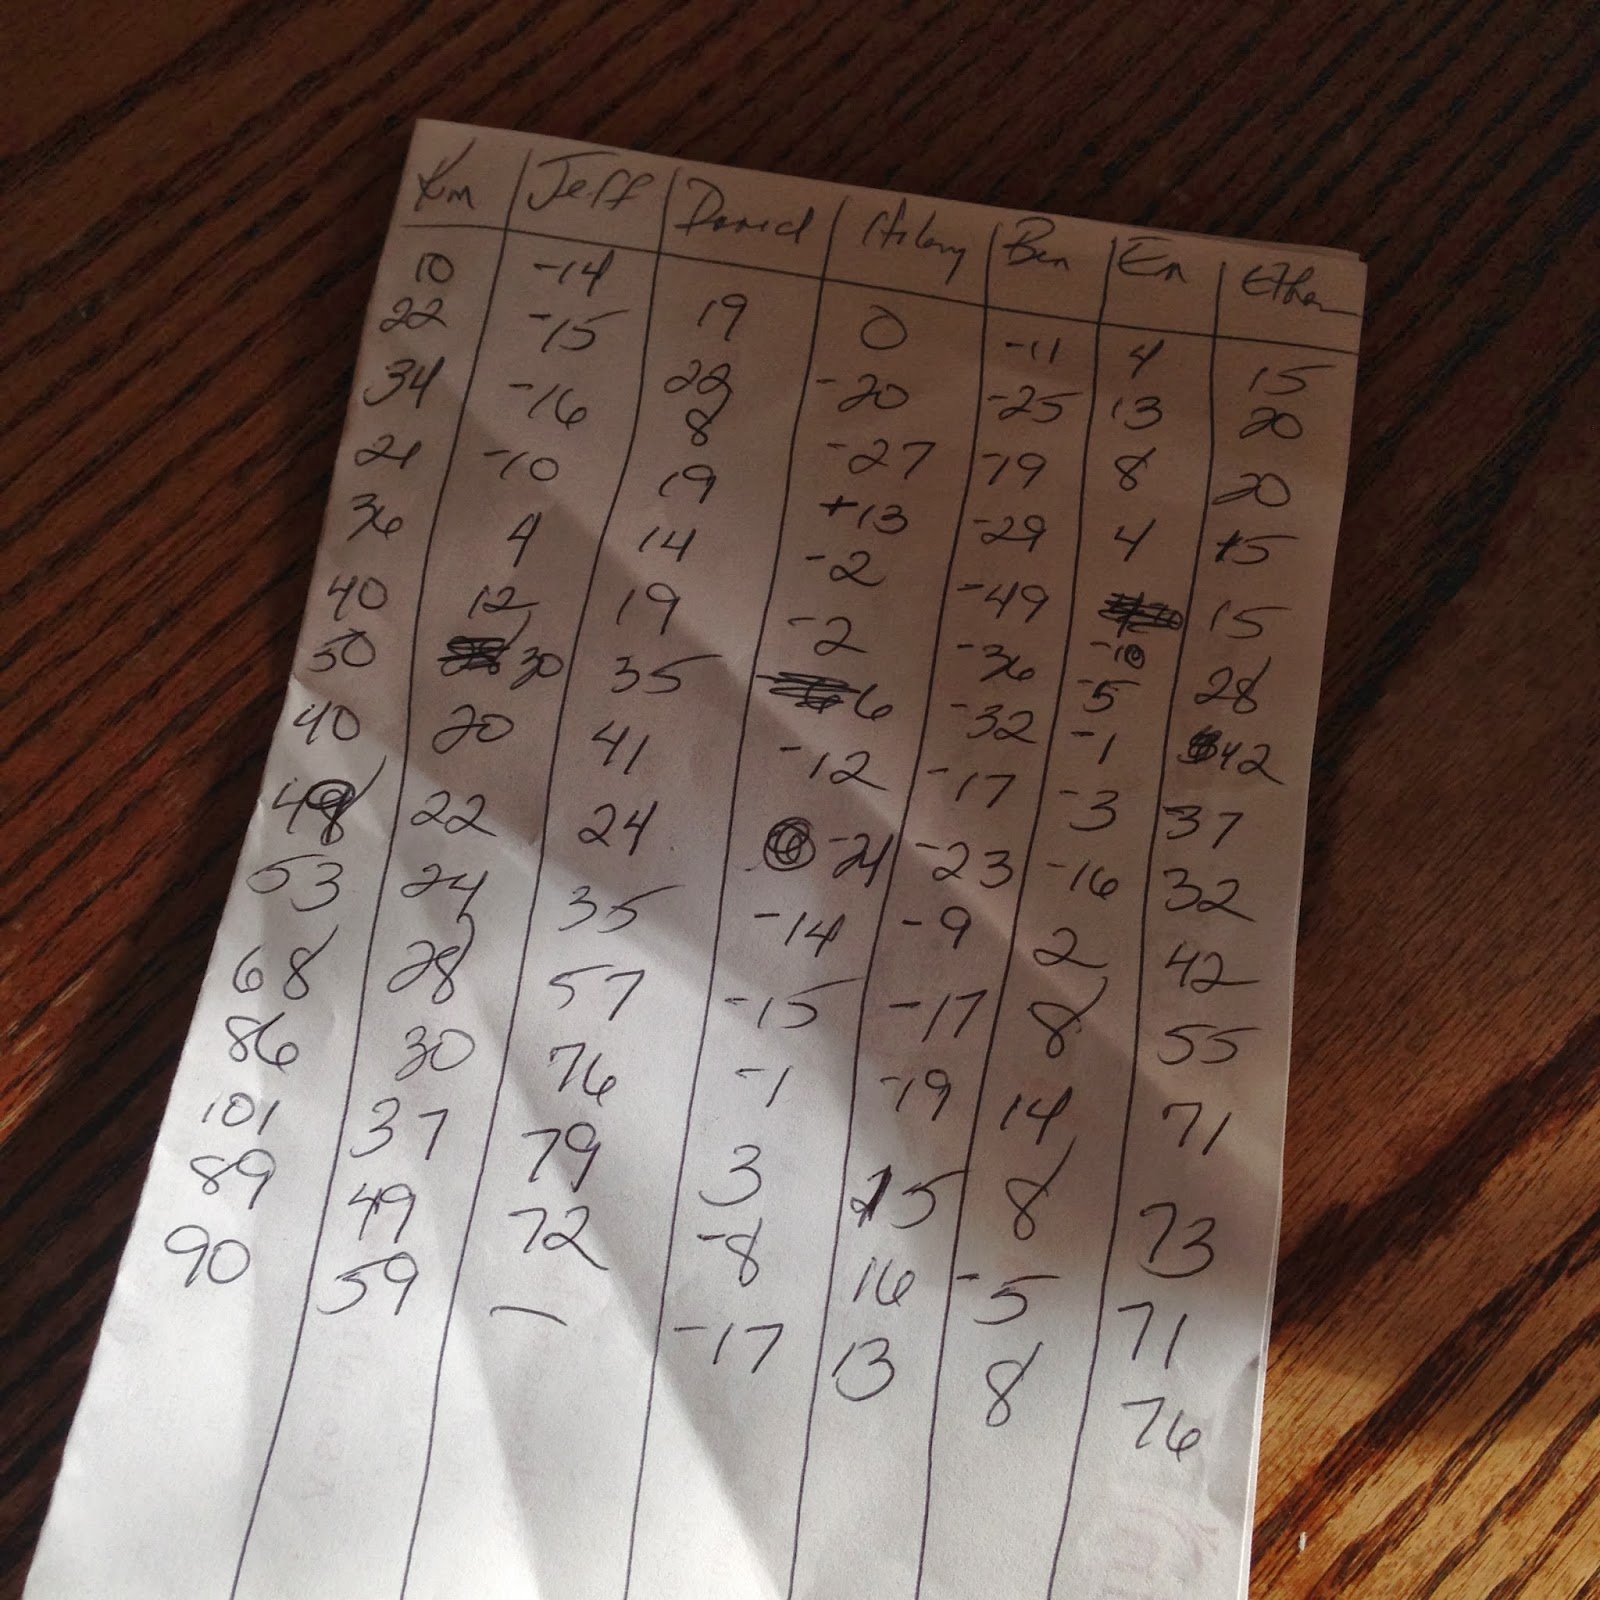 Km Jeff Daniel Hilary Ben Em Ethan
10 -14 19 0 -11 4 15
22 -15 22 -20 -25 13 20
34 -16 8 -27 -19 8 20
21 -10 19 +13 -29 4 15
36 4 14 -2 -49 -10 15
40 12 19 -2 -36 -5 28
50 30 35 6 -32 -1 42
40 20 41 -12 -17 -3 37
48 22 24 -24 -23 -16 32
53 24 35 -14 -9 2 42
68 28 57 -15 -17 8 55
86 30 76 -1 -19 14 71
101 37 79 3 15 8 73
89 49 72 -8 16 -5 71
90 59 — -17 13 8 76